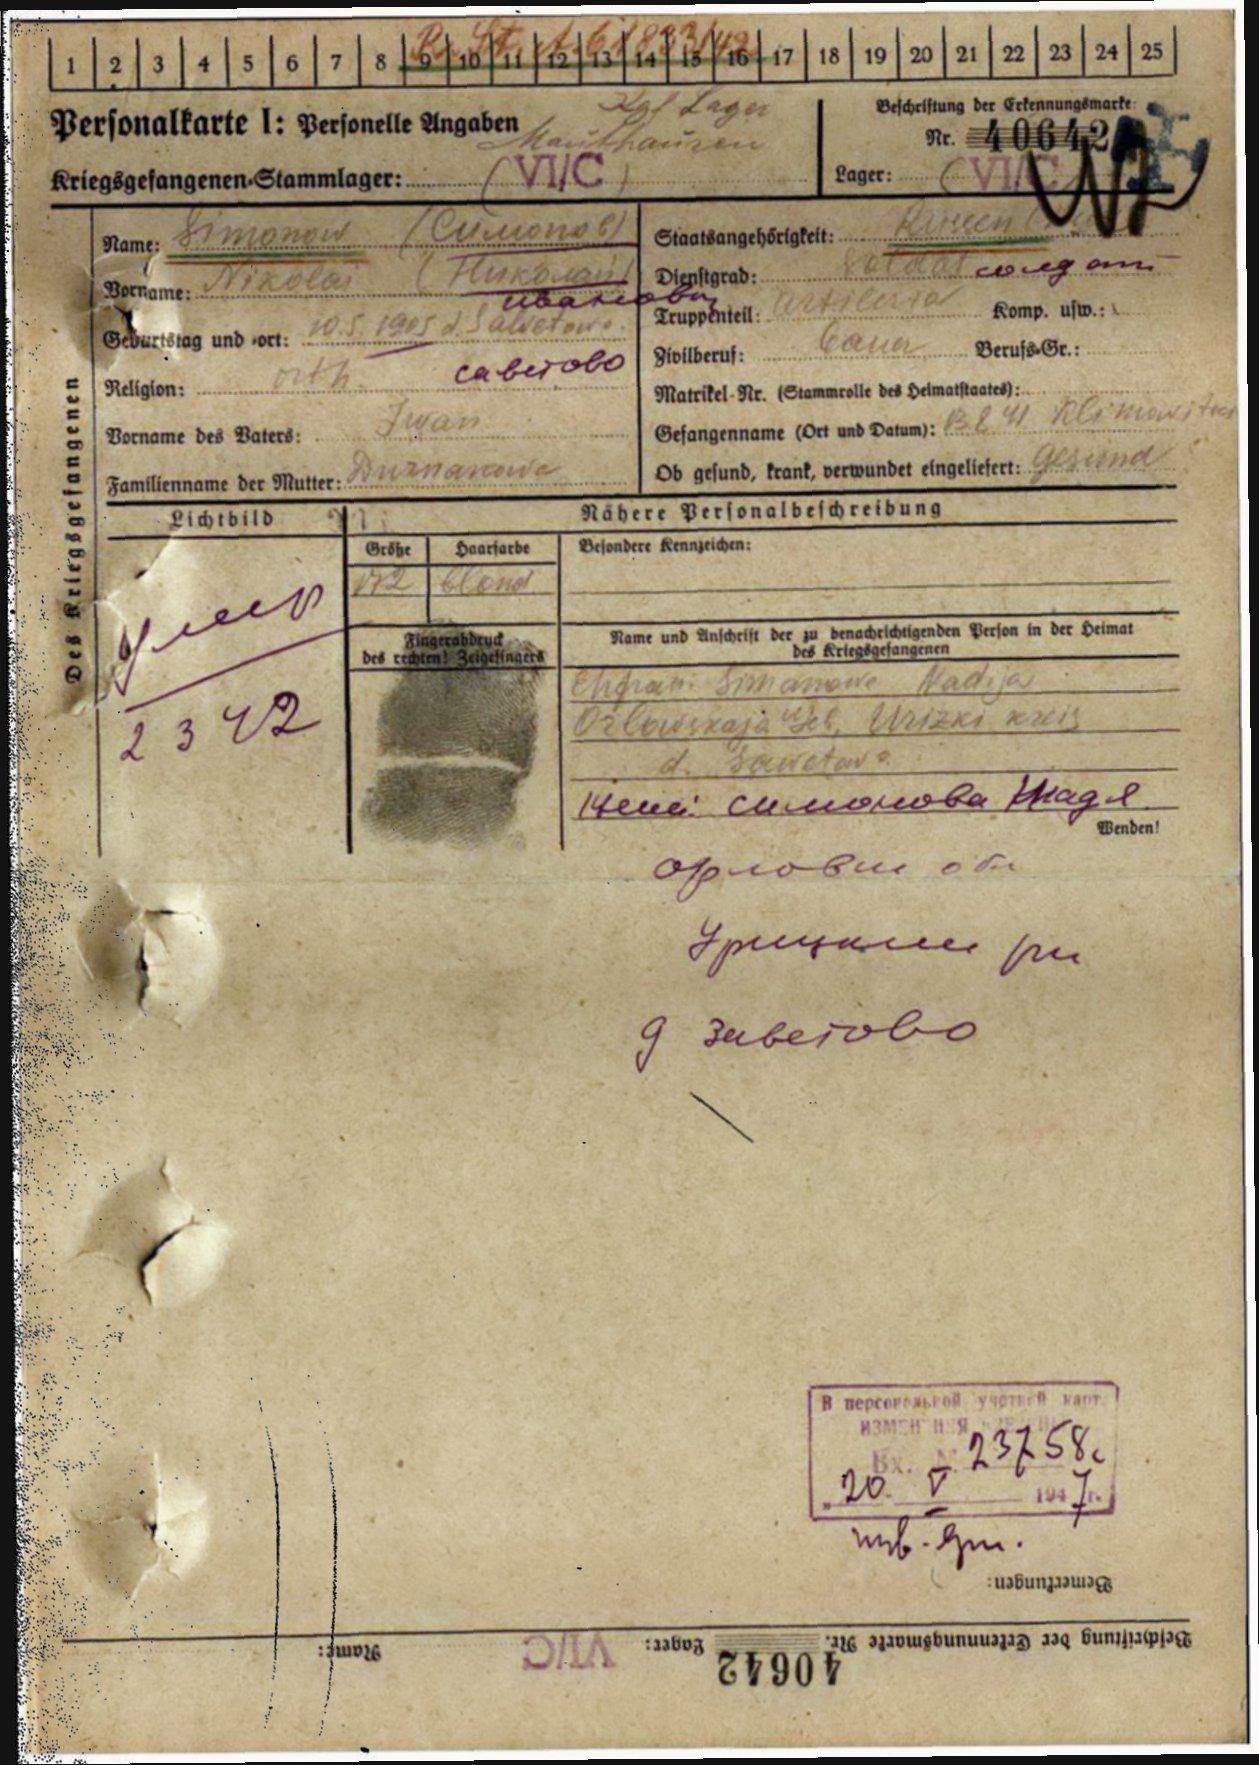 1 2 3 4 5 6 7 8 9 10 11 12 13 14 15 16 17 18 19 20 21 22 23 24 25
Personalkarte I: Personelle Angaben
Lager
Mauthausen
Kriegsgefangenen-Stammlager: (VI/C)
Beschriftung der Erkennungsmarke:
Nr. 40642
Lager: (VI/C)
Des Kriegsgefangenen
Name: Simonow (Симонов)
Vorname: Nikolai (Николай)
Иванович
Geburtstag und -ort: 10.5.1905 d. Sawetowo.
Religion: orth. саветово
Vorname des Vaters: Iwan
Familienname der Mutter: Durnakowa
Staatsangehörigkeit: Russen
Dienstgrad: Soldat солдат
Truppenteil: Artileria Komp. usw.:
Zivilberuf: Bauer Berufs-Gr.:
Matrikel-Nr. (Stammrolle des Heimatstaates):
Gefangennahme (Ort und Datum): 8 41
Ob gesund, krank, verwundet eingeliefert: Gesund
Lichtbild
Nähere Personalbeschreibung
Größe Haarfarbe Besondere Kennzeichen:
172 blond
умер
2 3 42
Fingerabdruck
des rechten! Zeigefingers
Name und Anschrift der zu benachrichtigenden Person in der Heimat
des Kriegsgefangenen
Ehefrau: Simanowa Nadija
Orlowskaja Geb. Urizki kreis
d. Sawetowo
Жена: Симонова Надя
Wenden!
Орловск обл
Урицкий рн
д Заветово
В персональной учетной карт.
изменения
Вх. № 23758с
„20. V 1947г.
Bemerkungen:
Beschriftung der Erkennungsmarke Nr. 40642 Lager: VI/C Name: